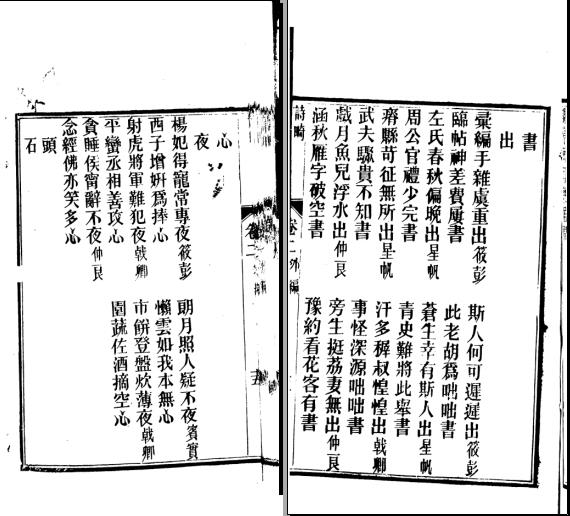 書
出
彙編手雜虞重出筱彭
斯人何可遲遲出筱彭
臨帖神差費屢書
此老胡爲咄咄書
左氏春秋偏晚出星帆
蒼生幸有斯人出星帆
周公官禮少完書
青史難將此舉書
瘠縣苛征無所出星帆
汗多穉叔惶惶出戟卿
武夫驟貴不知書
事怪深源咄咄書
戲月魚兒浮水出仲良
旁生挺荔妻無出仲良
涵秋雁字破空書
豫約看花客有書
詩畸
卷二外編
卷二
心
夜
楊妃得寵常專夜筱彭
朗月照人疑不夜賓實
西子增妍爲捧心
懶雲如我本無心
射虎將軍難犯夜戟卿
市餠登盤炊薄夜戟卿
平蠻丞相善攻心
園蔬佐酒摘空心
貪睡侯甯辭不夜仲良
念經佛亦笑多心
頭
石